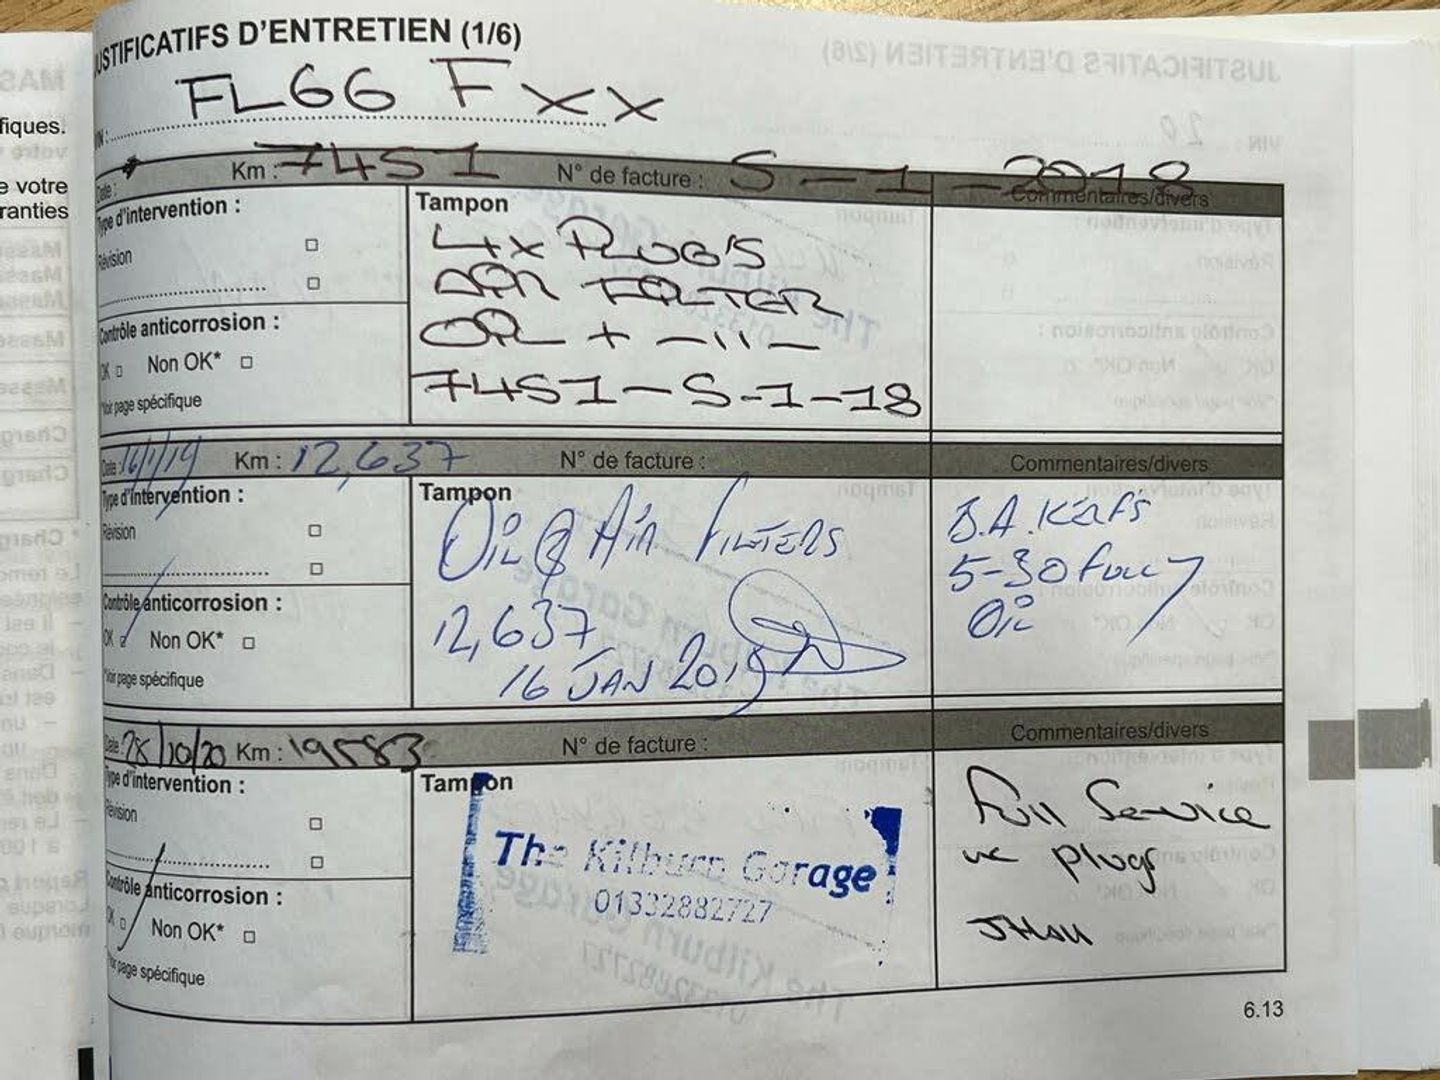 JUSTIFICATIFS D'ENTRETIEN (1/6)
FL66 FXX
VIN :
Date : Km : 7451 N° de facture : 5-1-2018
Commentaires/divers
Type d'intervention :
Révision
Contrôle anticorrosion :
OK Non OK*
*Voir page spécifique
Tampon
4x PLUG'S
AIR FILTER
OIL + -11-
7451-5-1-18
Date : 16/1/19 Km : 12,637 N° de facture :
Commentaires/divers
Type d'intervention :
Révision
Contrôle anticorrosion :
OK Non OK*
*Voir page spécifique
Tampon
Oil & Air Filters
12,637
16 JAN 2019
5-30 fully
Oil
Date : 28/10/20 Km : 19583
N° de facture :
Commentaires/divers
Type d'intervention :
Révision
Contrôle anticorrosion :
OK Non OK*
*Voir page spécifique
Tampon
The Kilburn Garage
01332882727
Full Service
inc plugs
6.13
MAS
fiques.
e votre
ranties